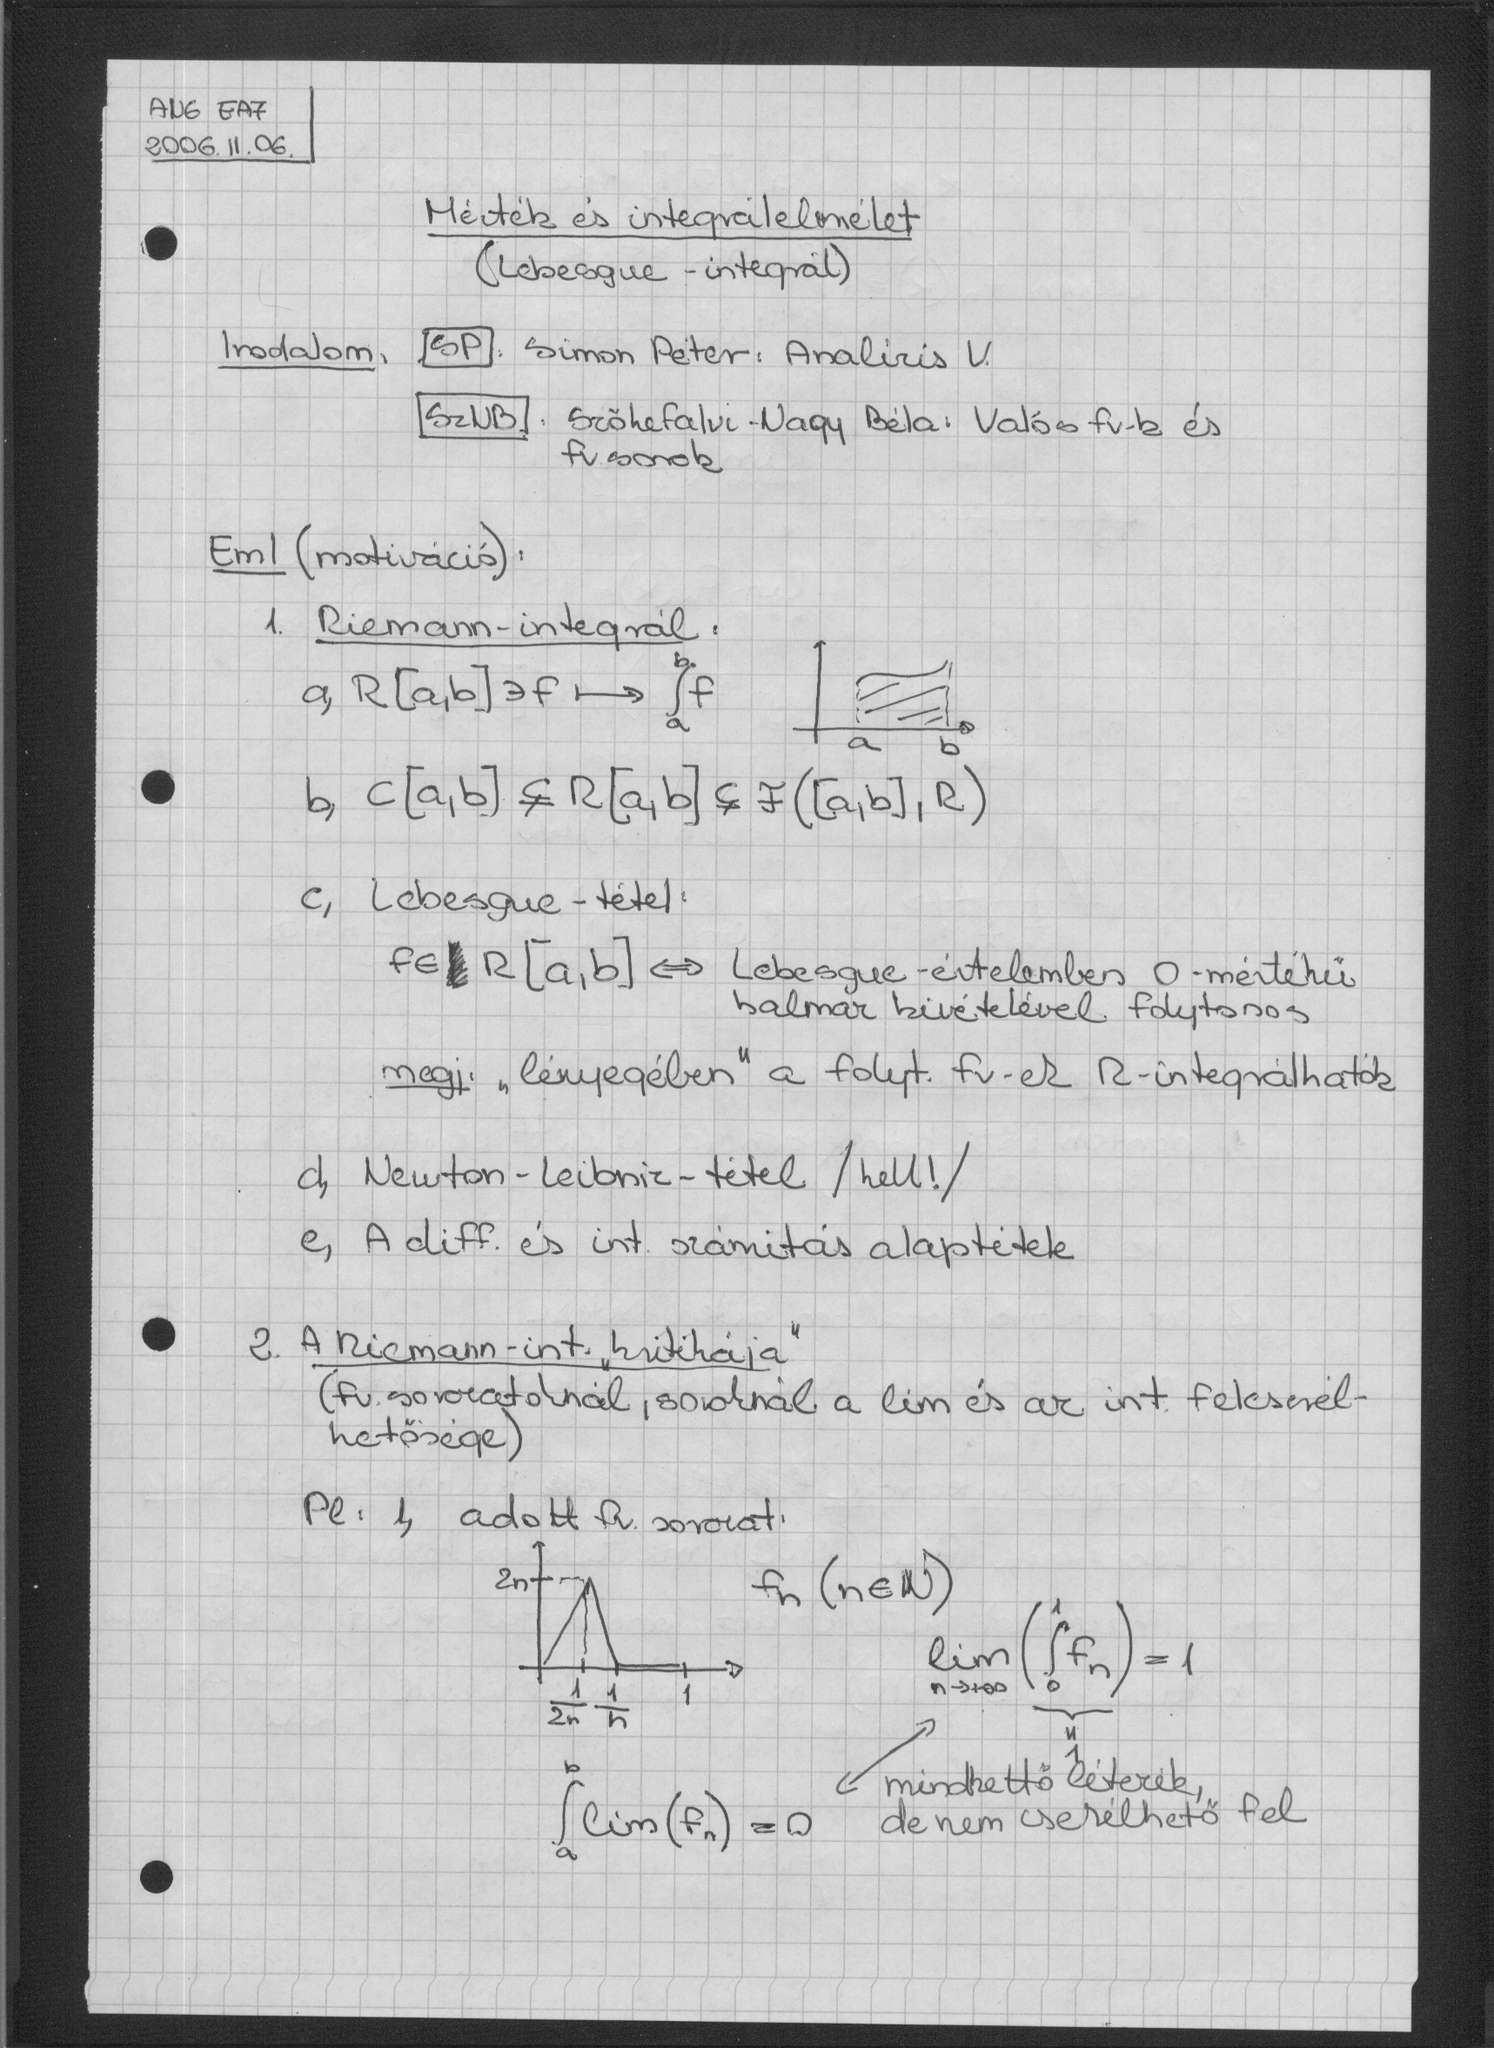 AN6 EA7
2006.11.06.
Mérték és integrálelmélet
(Lebesgue-integrál)
Irodalom: [SP]: Simon Péter: Analízis V.
[SzNB]: Szőkefalvi-Nagy Béla: Valós fv-k és
fv. sorok
Eml (motiváció):
1. Riemann-integrál:
a, R[a,b]∋f ⟼ ∫_a^b f
a b
b, C[a,b] ⊊ R[a,b] ⊊ F([a,b], R)
c, Lebesgue-tétel:
f∈ R[a,b] ⇔ Lebesgue-értelemben 0-mértékű
halmaz kivételével folytonos
megj: „lényegében" a folyt. fv-ek R-integrálhatók
d, Newton-Leibniz-tétel /kell!/
e, A diff. és int. számítás alaptétele
2. A Riemann-int. „kritikája"
(fv. sorozatoknál, soroknál a lim és az int. felcserél-
hetősége)
Pl: 1, adott fv. sorozat:
2n
1/2n 1/n 1
fn (n∈N)
lim_{n→+∞} (∫_0^1 fn) = 1
" 1
∫_a^b lim(fn) = 0
mindkettő létezik,
de nem cserélhető fel